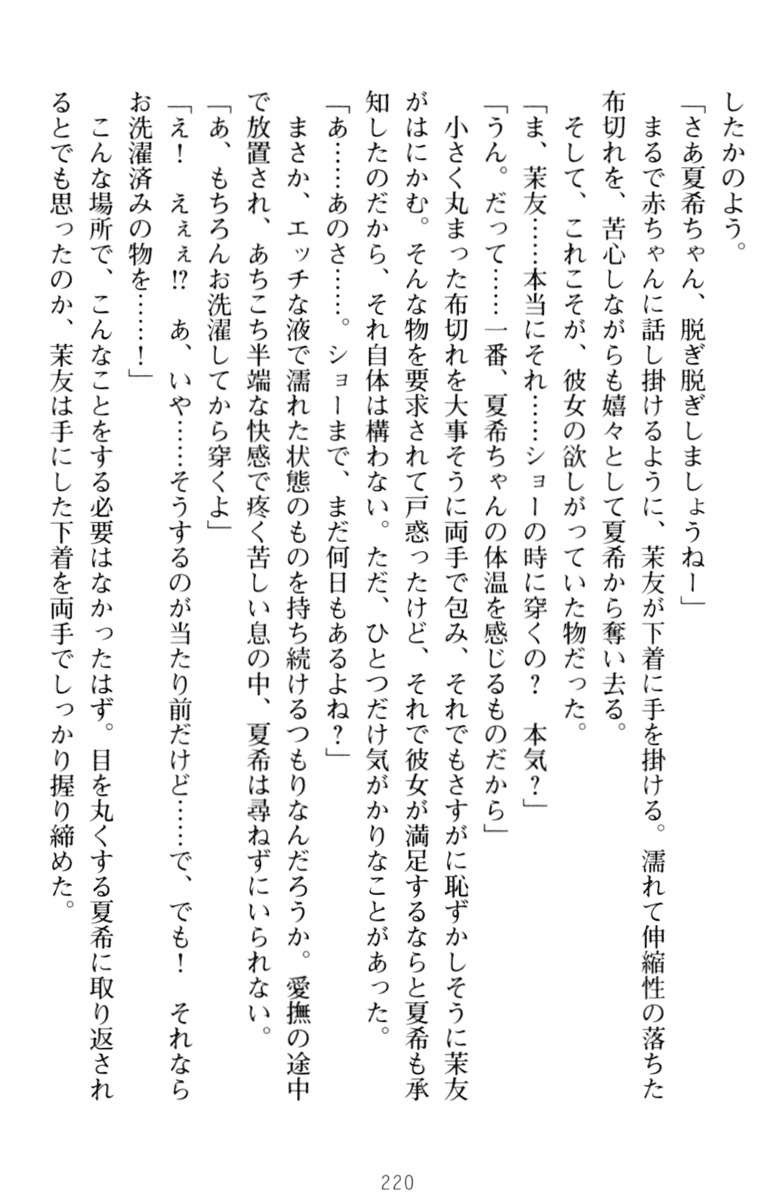 したかのよう。
「さあ夏希ちゃん、脱ぎ脱ぎしましょうねー」
まるで赤ちゃんに話し掛けるように、茉友が下着に手を掛ける。濡れて伸縮性の落ちた
布切れを、苦心しながらも嬉々として夏希から奪い去る。
そして、これこそが、彼女の欲しがっていた物だった。
「ま、茉友……本当にそれ……ショーの時に穿くの？　本気？」
「うん。だって……一番、夏希ちゃんの体温を感じるものだから」
小さく丸まった布切れを大事そうに両手で包み、それでもさすがに恥ずかしそうに茉友
がはにかむ。そんな物を要求されて戸惑ったけど、それで彼女が満足するならと夏希も承
知したのだから、それ自体は構わない。ただ、ひとつだけ気がかりなことがあった。
「あ……あのさ……。ショーまで、まだ何日もあるよね？」
まさか、エッチな液で濡れた状態のものを持ち続けるつもりなんだろうか。愛撫の途中
で放置され、あちこち半端な快感で疼く苦しい息の中、夏希は尋ねずにいられない。
「あ、もちろんお洗濯してから穿くよ」
「え！　えぇぇ!?　あ、いや……そうするのが当たり前だけど……で、でも！　それなら
お洗濯済みの物を……！」
こんな場所で、こんなことをする必要はなかったはず。目を丸くする夏希に取り返され
るとでも思ったのか、茉友は手にした下着を両手でしっかり握り締めた。
220